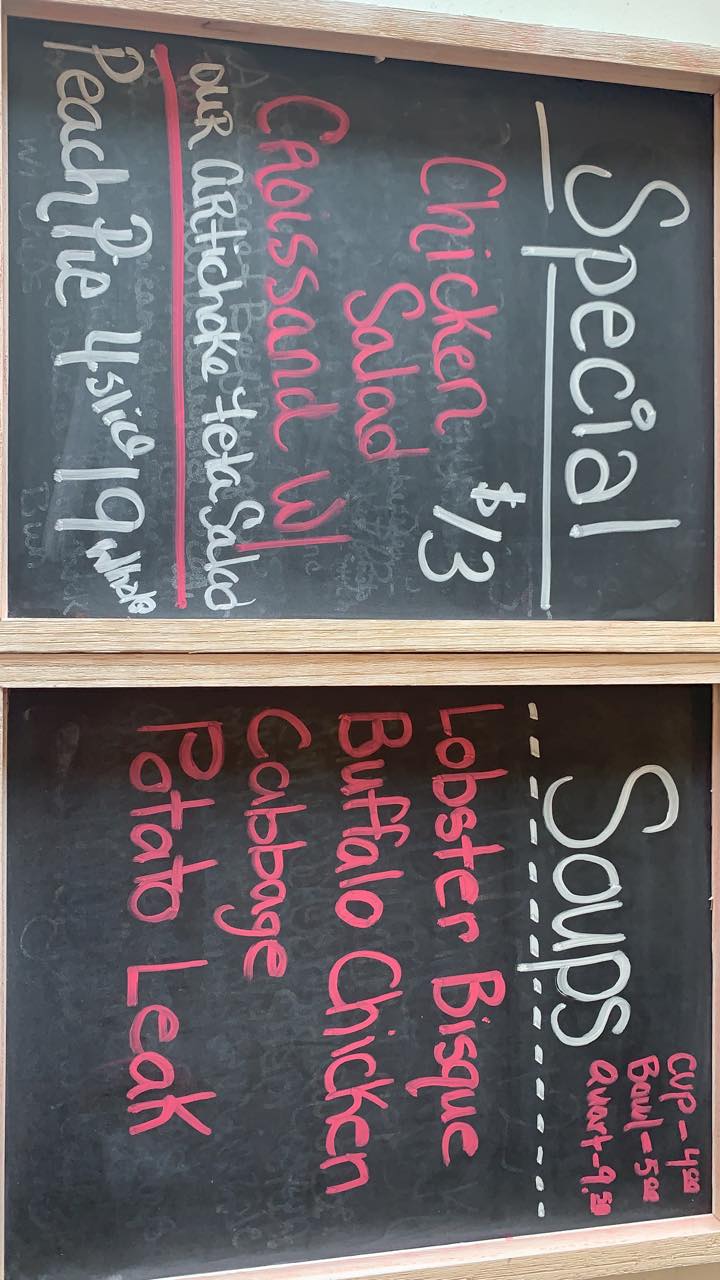 Special
Chicken $13
Salad
CROissand W/
OUR ARtichoke feta Salad
Peach Pie 4 slice 19 whole
Soups
Cup - 4.00
Bawl - 5.00
Quart - 9.50
Lobster Bisque
Buffalo Chicken
Cabbage
Potato Leak